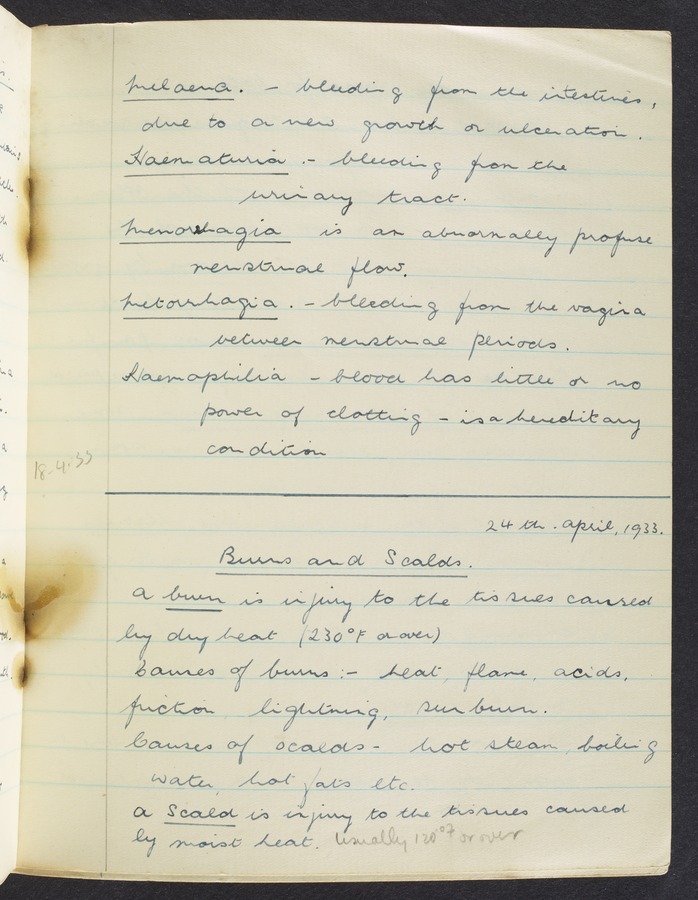 Melaena. - bleeding from the intestines,
due to a new growth or ulceration.
Haematuria. - bleeding from the
urinary tract.
Menorrhagia is an abnormally profuse
menstrual flow.
Metorrhagia. - bleeding from the vagina
between menstrual periods.
Haemophilia - blood has little or no
power of clotting - is a hereditary
condition
18-4-33
24th. April, 1933.
Burns and Scalds.
A burn is injury to the tissues caused
by dry heat (230°F or over)
Causes of burns :- heat, flame, acids,
friction, lightning, sunburn.
Causes of scalds - hot steam, boiling
water, hot fats etc.
A Scald is injury to the tissues caused
by moist heat. Usually 120°F or over